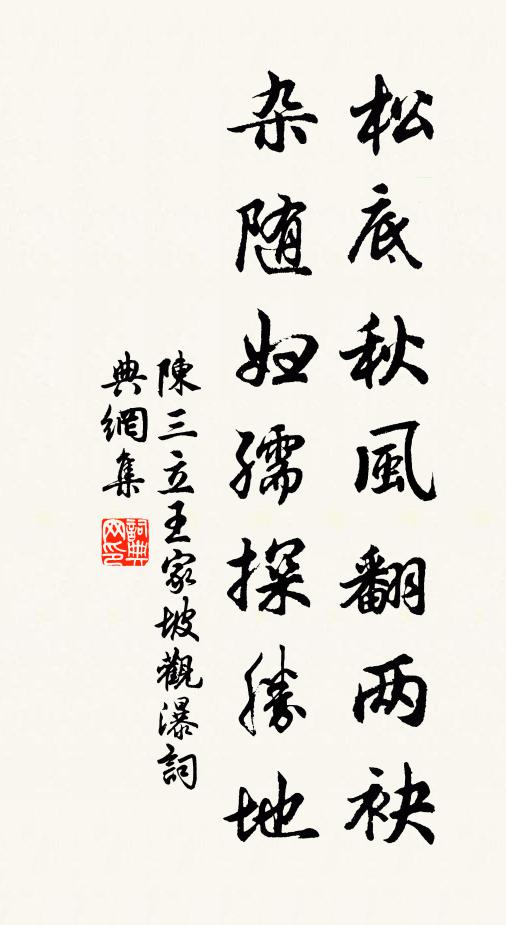 松底秋風翻两袂
杂随妇孺探勝地
陳三立王家坡觀瀑詞
典網集
詞典网印